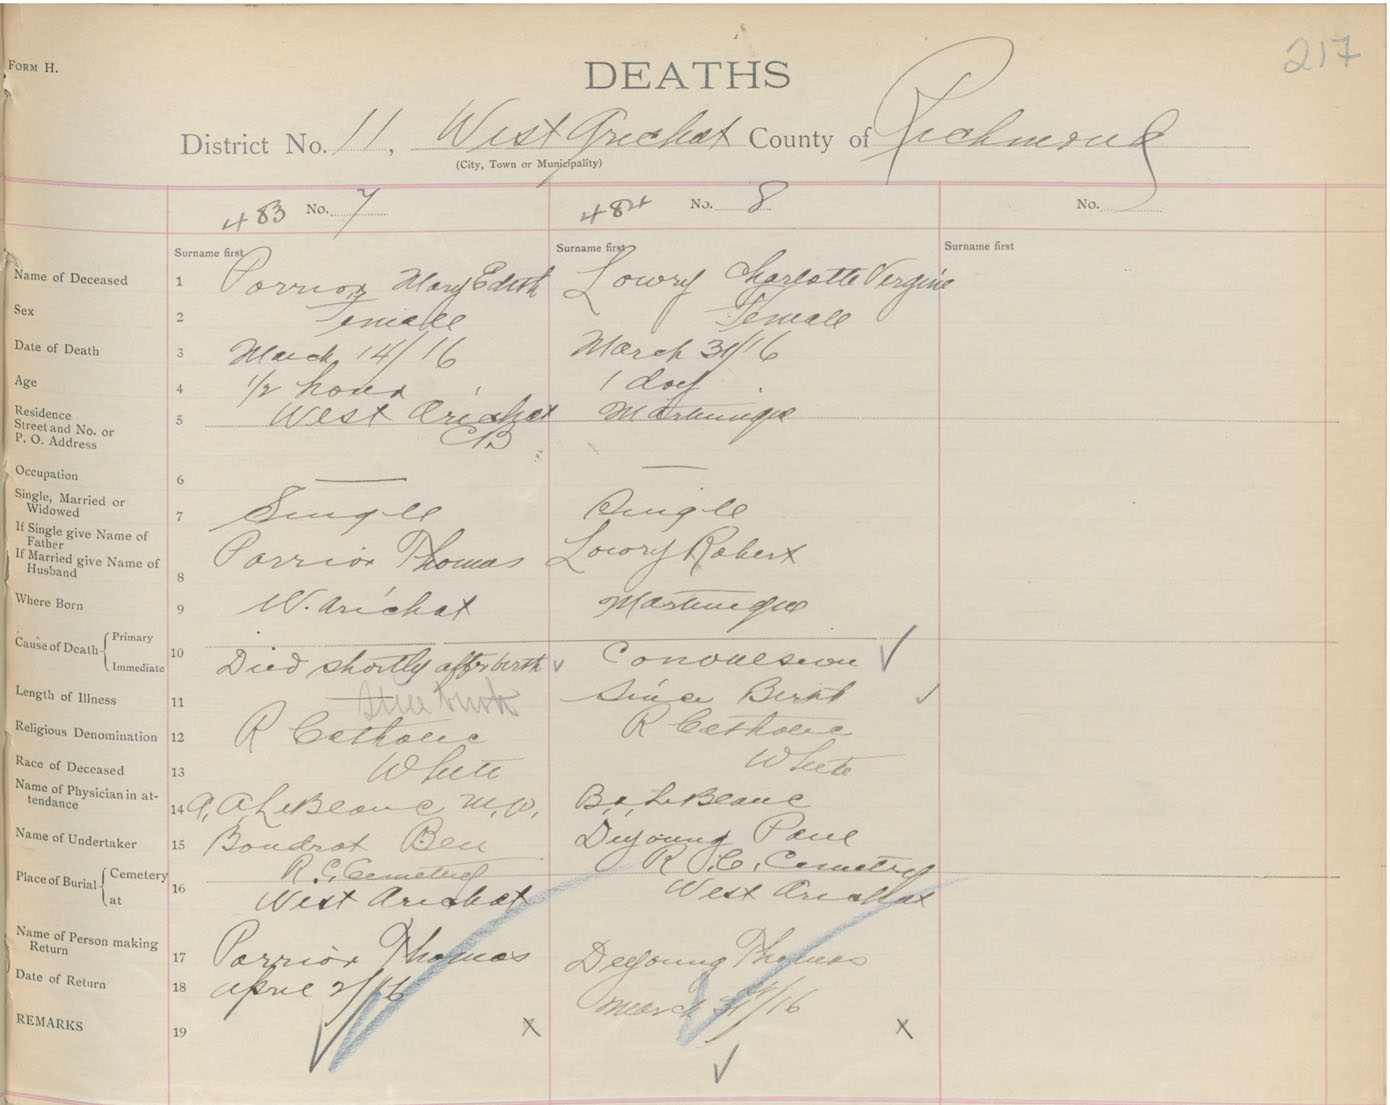 217
FORM H.
DEATHS
District No. 11, West Arichat County of Richmond
(City, Town or Municipality)
483 No. 7 484 No. 8 No.
Surname first Surname first Surname first
Name of Deceased 1 Porrior Mary Edith Lowry Charlotte Vergine
Sex 2 Female Female
Date of Death 3 March 14/16 March 31/16
Age 4 1/2 hour 1 day
Residence
Street and No. or
P. O. Address 5 West Arichat Martinique
CB
Occupation 6 — —
Single, Married or
Widowed 7 Single Single
If Single give Name of
Father
If Married give Name of
Husband 8 Porrior Thomas Lowry Robert
Where Born 9 W. Arichat Martinique
Cause of Death Primary
Immediate 10 Died shortly after birth Convulsion
Still birth
Length of Illness 11 — Since Birth
Religious Denomination 12 R Catholic R Catholic
Race of Deceased 13 White White
Name of Physician in at-
tendance 14 A. A LeBlanc M.D. LeBlanc
Name of Undertaker 15 Boudrot Ben Deyoung Paul
Place of Burial Cemetery R.C. Cemetery R.C. Cemetery
at 16 West Arichat West Arichat
Name of Person making
Return 17 Porrior Thomas Deyoung Thomas
Date of Return 18 April 2/16 March 31/16
REMARKS 19 x x